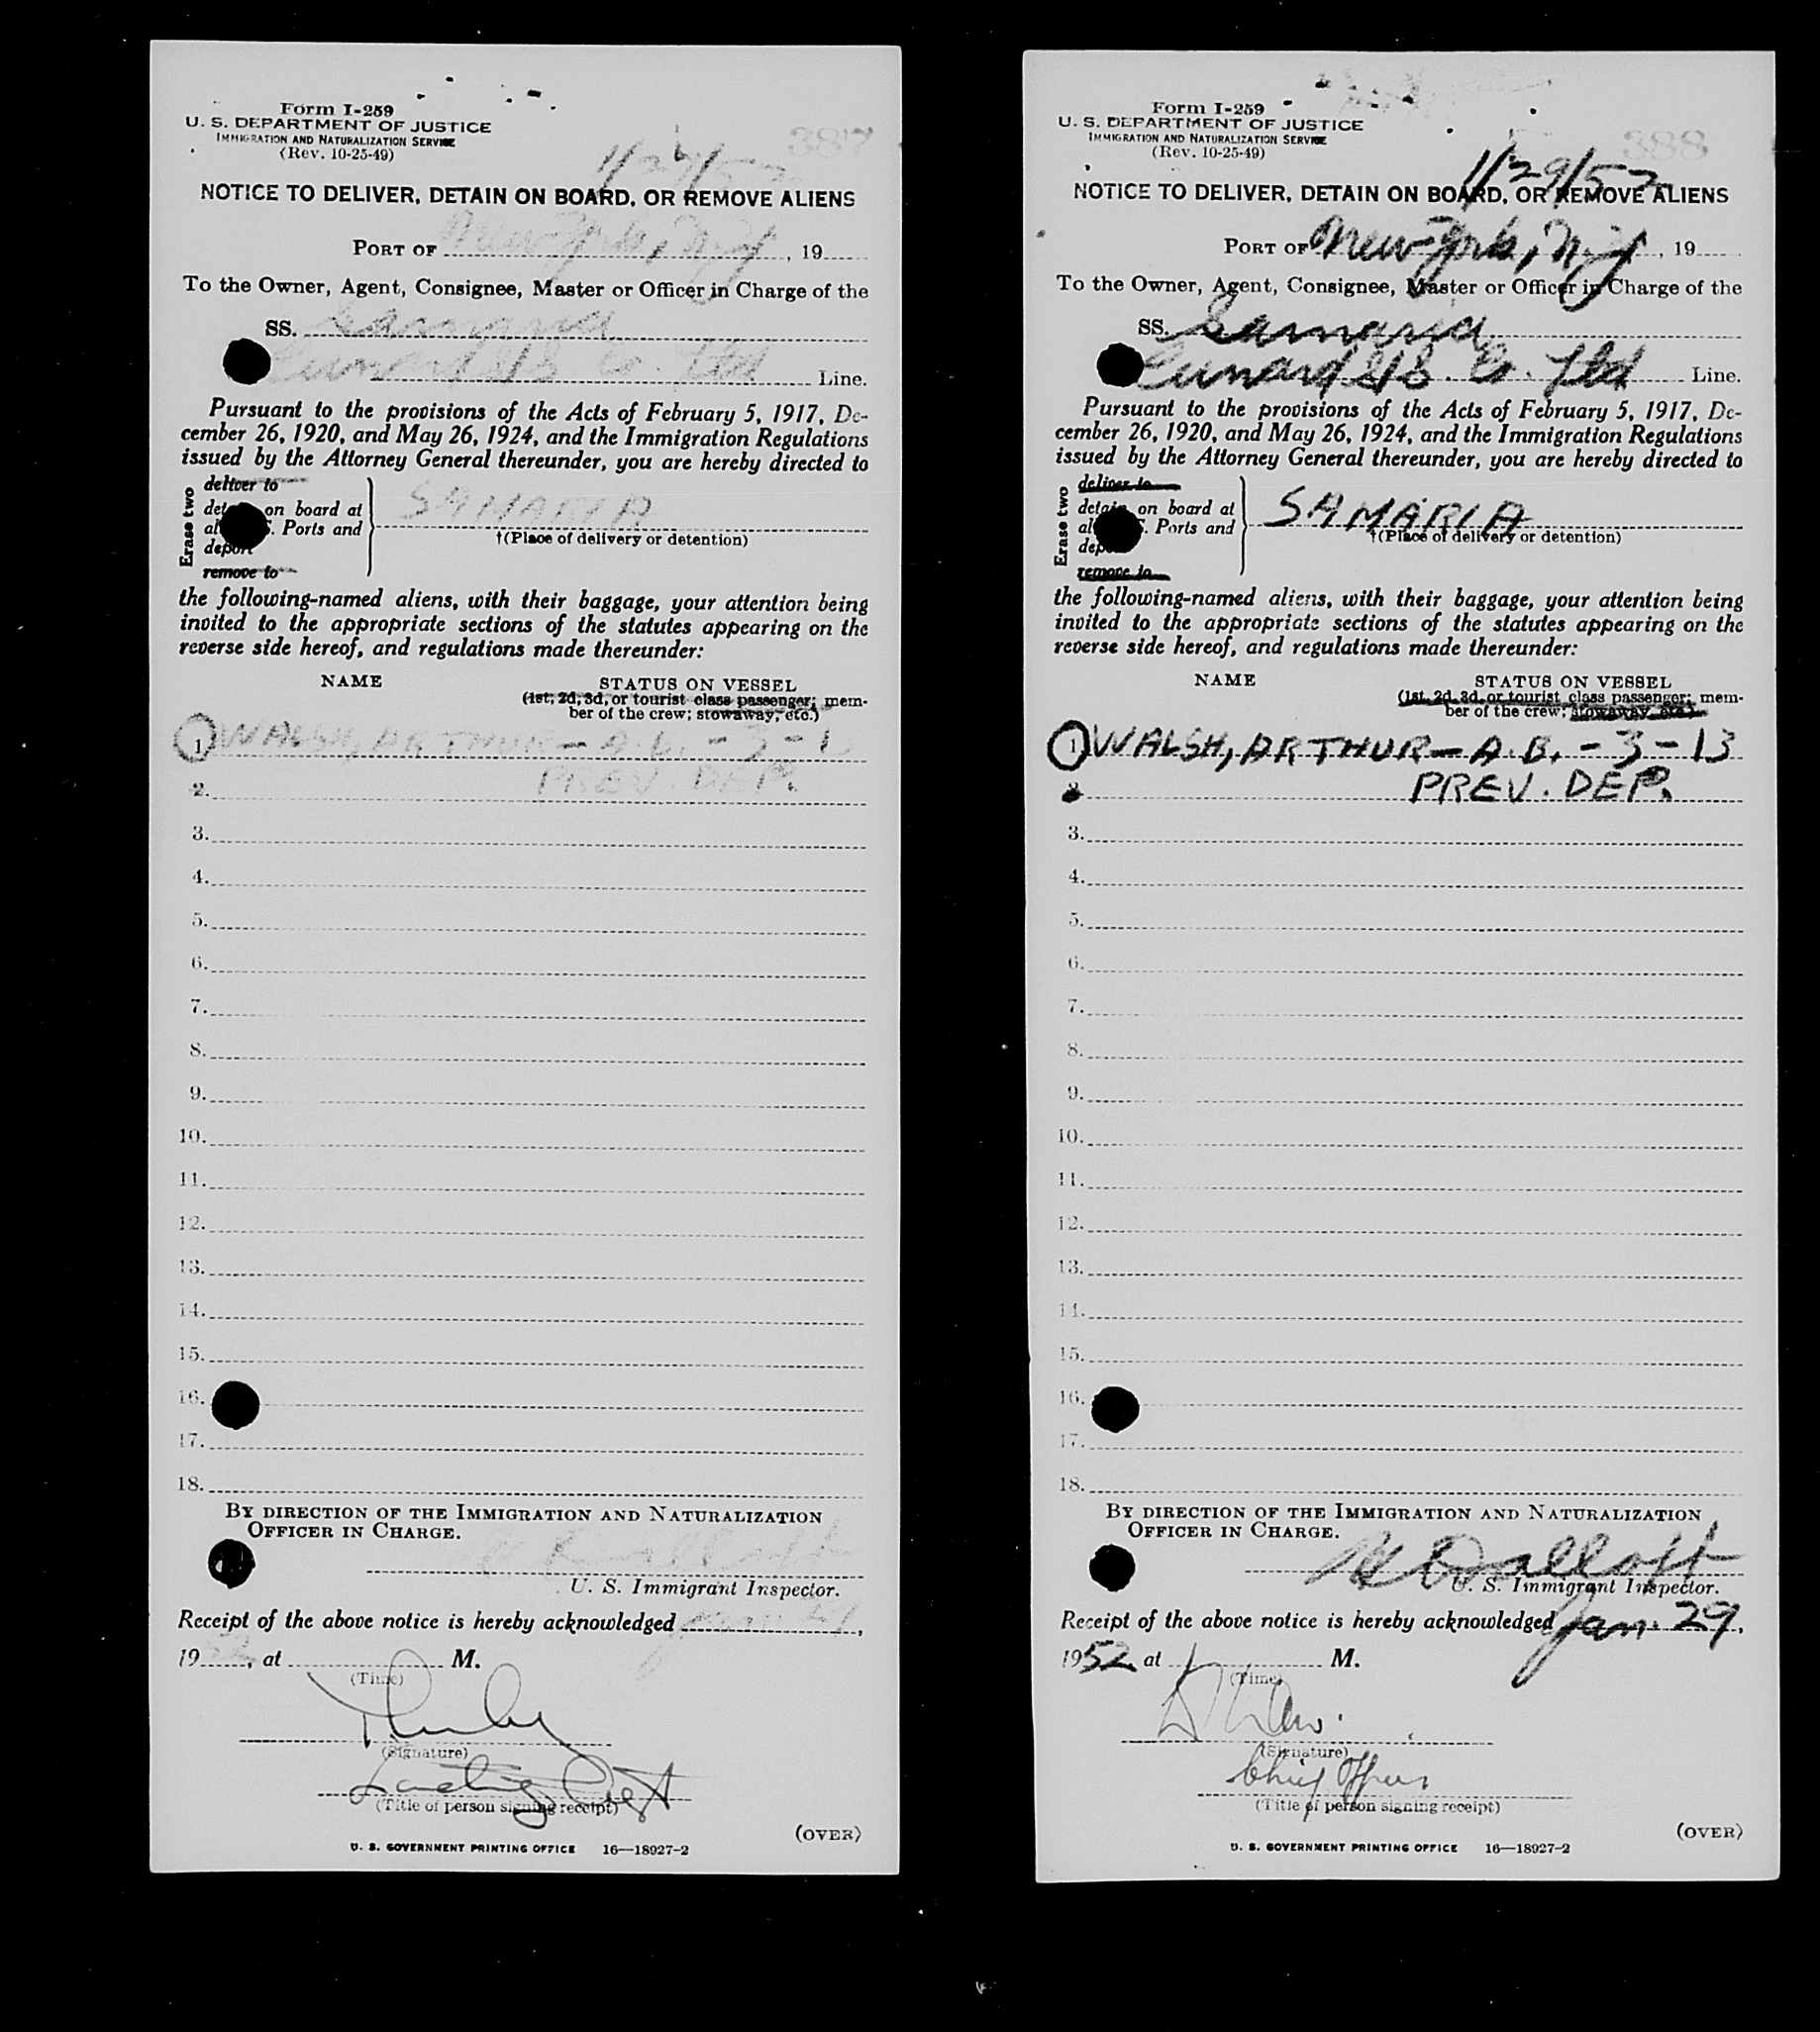 Form I-259
U. S. DEPARTMENT OF JUSTICE
IMMIGRATION AND NATURALIZATION SERVICE
(Rev. 10-25-49)
387
NOTICE TO DELIVER, DETAIN ON BOARD, OR REMOVE ALIENS
PORT OF New York, N.Y., 19
To the Owner, Agent, Consignee, Master or Officer in Charge of the
SS. Samaria
Cunard SS Co. Ltd Line.
Pursuant to the provisions of the Acts of February 5, 1917, De-
cember 26, 1920, and May 26, 1924, and the Immigration Regulations
issued by the Attorney General thereunder, you are hereby directed to
Erase two
deliver to
on board at
Ports and
deport
remove to
SAMARIA
†(Place of delivery or detention)
the following-named aliens, with their baggage, your attention being
invited to the appropriate sections of the statutes appearing on the
reverse side hereof, and regulations made thereunder:
NAME STATUS ON VESSEL
(1st, 2d, 3d, or tourist class passenger; mem-
ber of the crew; stowaway, etc.)
1 WALSH, ARTHUR - A.B. - 3 - 1
2. PREV. DEP.
3.
4.
5.
6.
7.
8.
9.
10.
11.
12.
13.
14.
15.
16.
17.
18.
BY DIRECTION OF THE IMMIGRATION AND NATURALIZATION
OFFICER IN CHARGE.
U. S. Immigrant Inspector.
Receipt of the above notice is hereby acknowledged
19 , at M.
(Time)
(Signature)
(Title of person signing receipt)
(OVER)
U. S. GOVERNMENT PRINTING OFFICE 16—18927-2
Form I-259
U. S. DEPARTMENT OF JUSTICE
IMMIGRATION AND NATURALIZATION SERVICE
(Rev. 10-25-49)
388
1/29/52
NOTICE TO DELIVER, DETAIN ON BOARD, OR REMOVE ALIENS
PORT OF New York, N.Y., 19
To the Owner, Agent, Consignee, Master or Officer in Charge of the
SS. Samaria
Cunard SS. Co. Ltd Line.
Pursuant to the provisions of the Acts of February 5, 1917, De-
cember 26, 1920, and May 26, 1924, and the Immigration Regulations
issued by the Attorney General thereunder, you are hereby directed to
Erase two
deliver to
detain on board at
Ports and
remove to
SAMARIA
†(Place of delivery or detention)
the following-named aliens, with their baggage, your attention being
invited to the appropriate sections of the statutes appearing on the
reverse side hereof, and regulations made thereunder:
NAME STATUS ON VESSEL
(1st, 2d, 3d, or tourist class passenger; mem-
ber of the crew; stowaway, etc.)
1 WALSH, ARTHUR - A.B. - 3 - 13
PREV. DEP.
3.
4.
5.
6.
7.
8.
9.
10.
11.
12.
13.
14.
15.
16.
17.
18.
BY DIRECTION OF THE IMMIGRATION AND NATURALIZATION
OFFICER IN CHARGE.
U. S. Immigrant Inspector.
Receipt of the above notice is hereby acknowledged Jan. 29,
1952 at M.
(Time)
(Signature)
Chief Officer
(Title of person signing receipt)
(OVER)
U. S. GOVERNMENT PRINTING OFFICE 16—18927-2